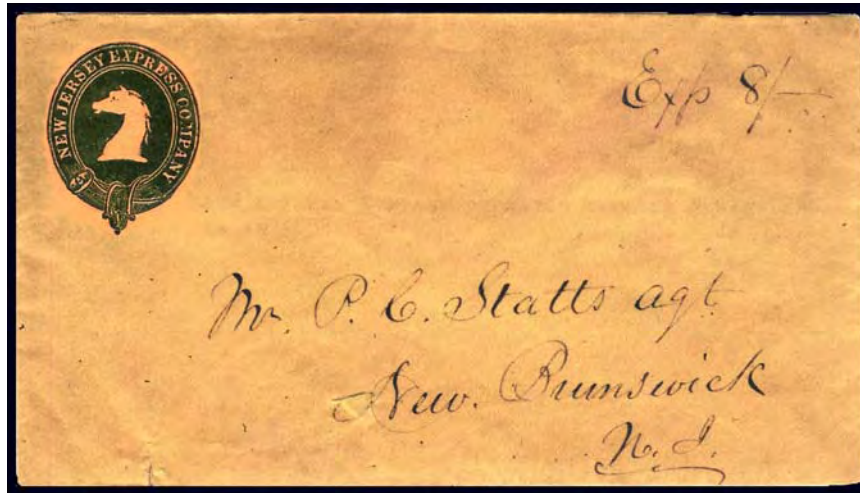 NEW JERSEY EXPRESS COMPANY
Exp 8/-
Mr. P. C. Statts agt
New. Brunswick
N. J.